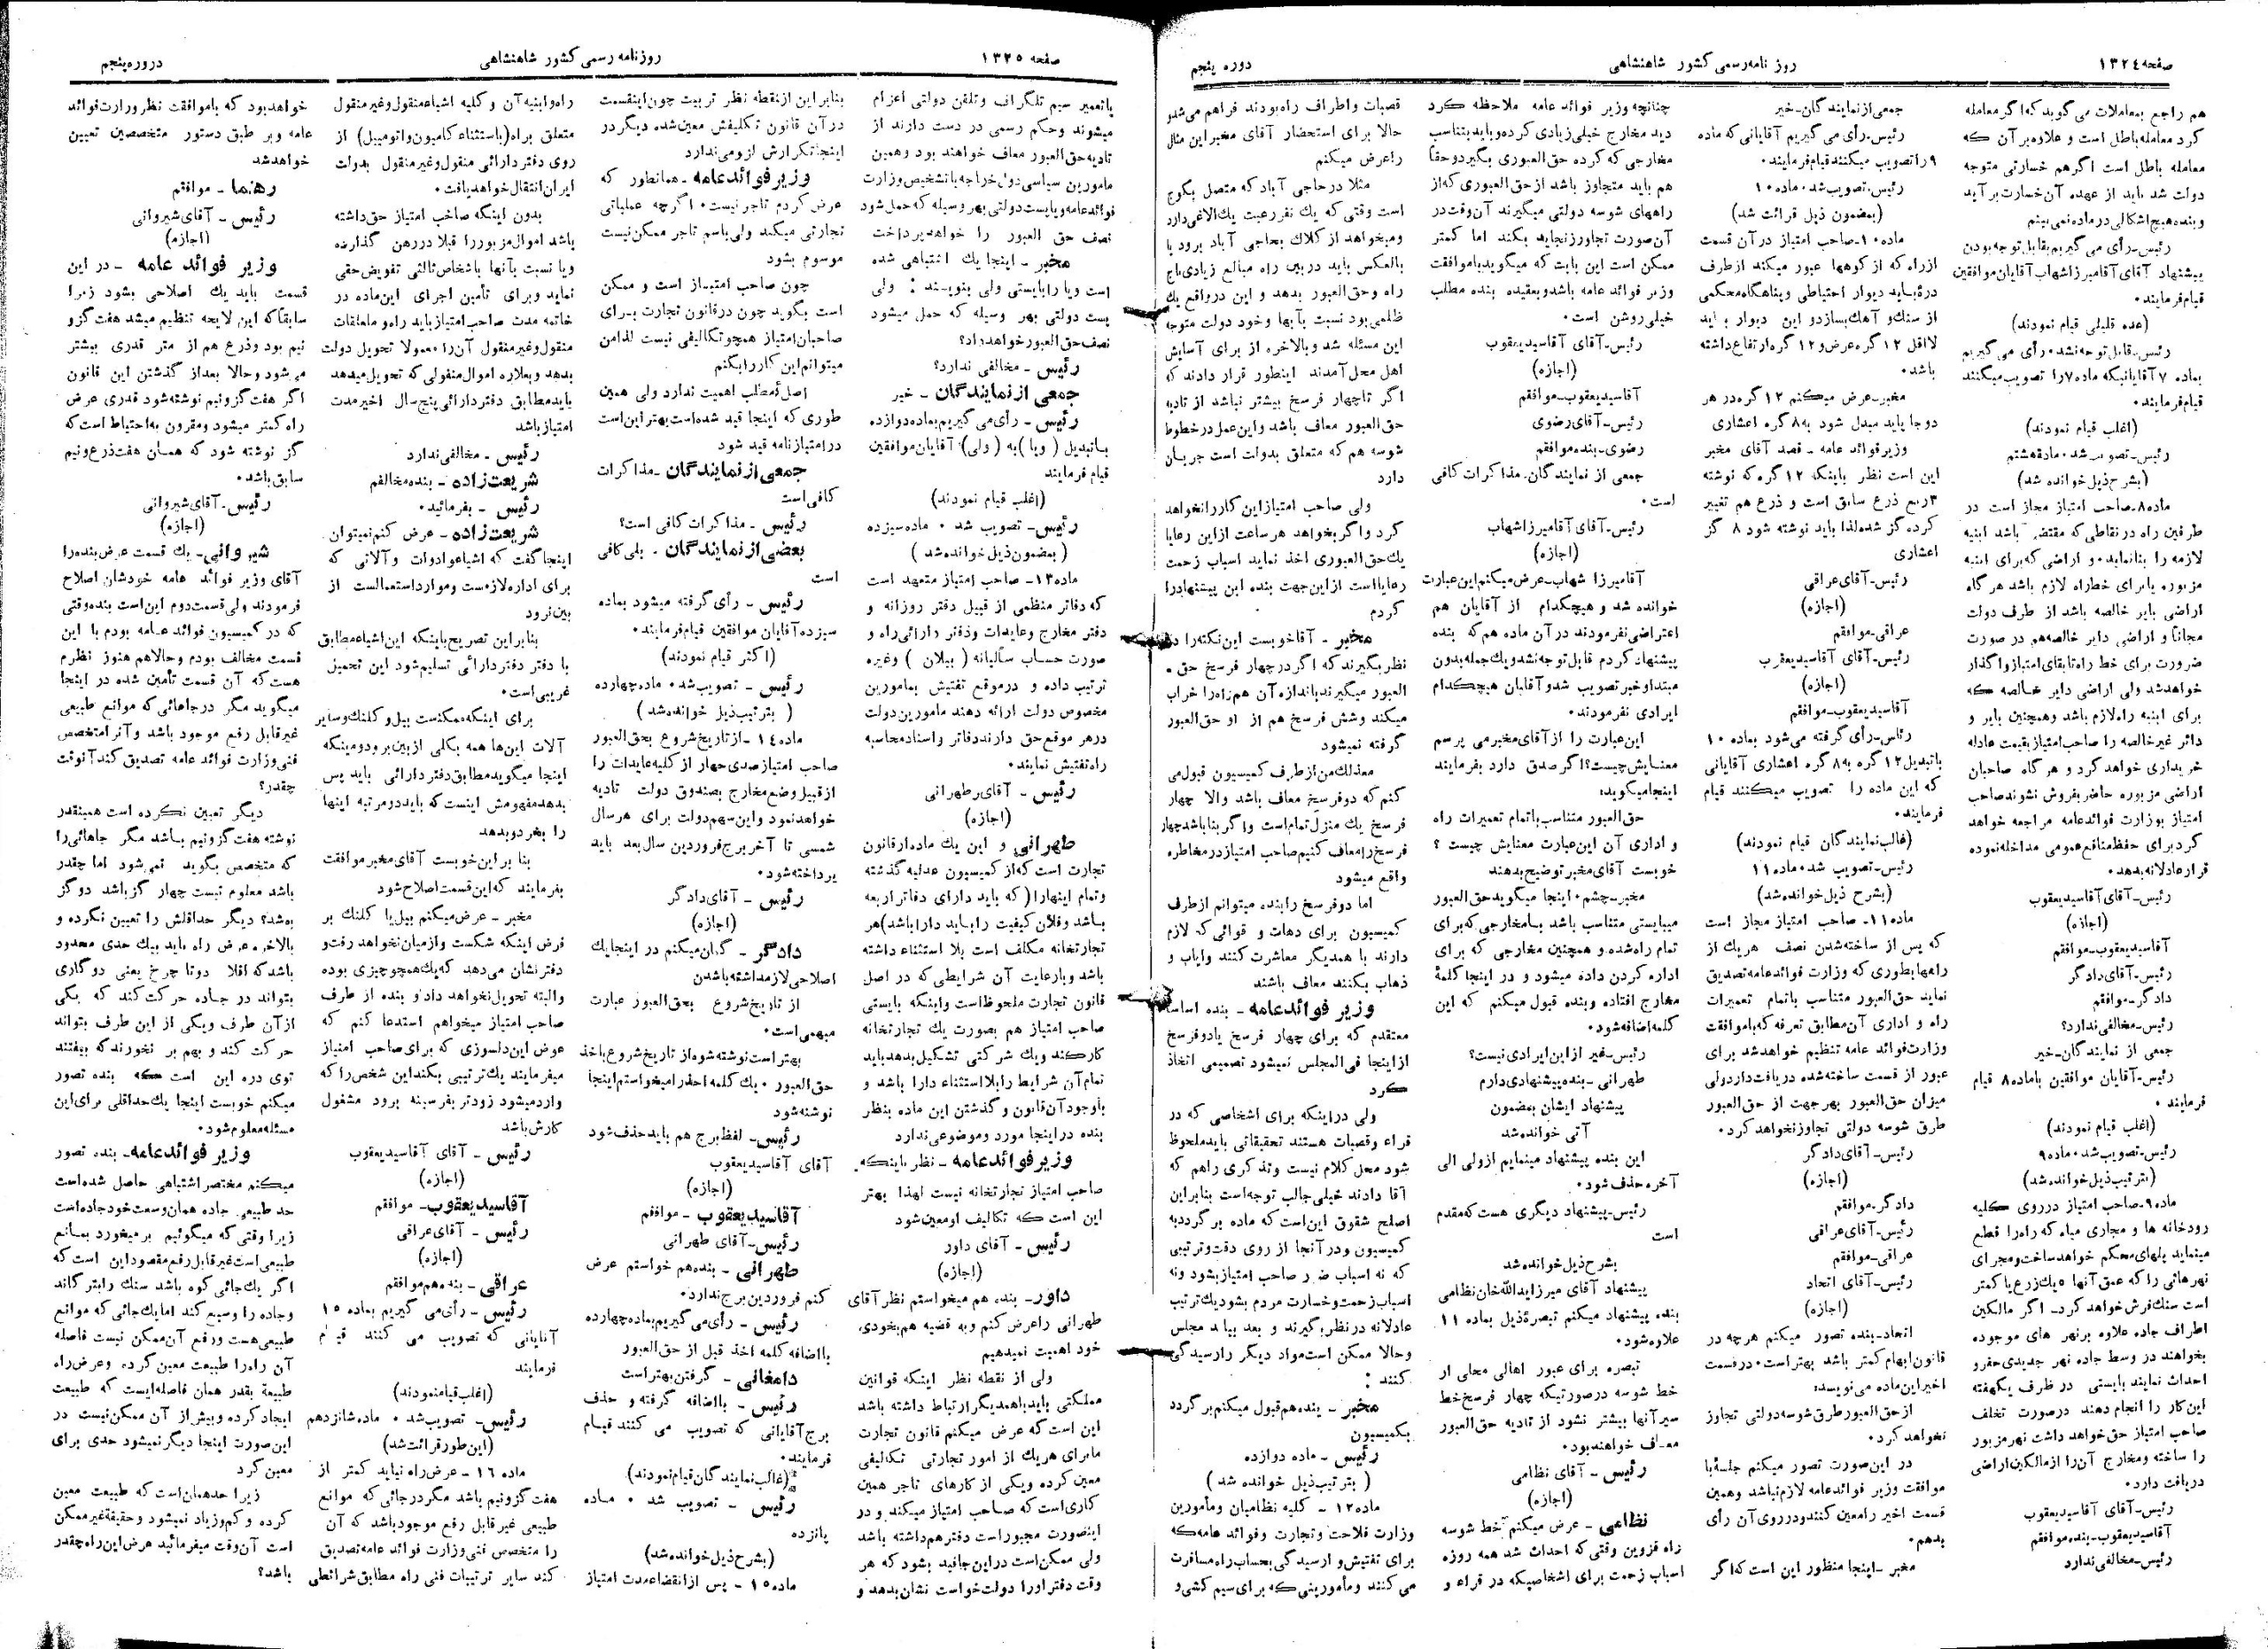 صفحه ۱۳۲٤
روز نامه رسمی کشور شاهنشاهی
دوره پنجم
هم راجع بمعاملات می گوید که اگر معامله
کرد معامله باطل است و علاوه بر آن که
معامله باطل است اگر هم خسارتی متوجه
دولت شد باید از عهده آن خسارت بر آید
و بنده هیچ اشکالی در ماده نمی بینم
رئیس ـ رأی می گیریم بقابل توجه بودن
پیشنهاد آقای آقامیرزا شهاب آقایان موافقین
قیام فرمایند.
(عده قلیلی قیام نمودند)
رئیس ـ قابل توجه نشد. رأی می گیریم
بماده ۷ آقایانیکه ماده ۷ را تصویب میکنند
قیام فرمایند.
(اغلب قیام نمودند)
رئیس ـ تصویب شد. ماده هشتم
(بشرح ذیل خوانده شد)
ماده ۸ ـ صاحب امتیاز مجاز است در
طرفین راه در نقاطی که مقتضی باشد ابنیه
لازمه را بنا نماید و اراضی که برای ابنیه
مزبوره یا برای خط راه لازم باشد هر گاه
اراضی بایر خالصه باشد از طرف دولت
مجاناً و اراضی دایر خالصه هم در صورت
ضرورت برای خط راه تا بقای امتیاز واگذار
خواهد شد ولی اراضی دایر خالصه که
برای ابنیه راه لازم باشد وهمچنین بایر و
دائر غیر خالصه را صاحب امتیاز بقیمت عادله
خریداری خواهد کرد و هر گاه صاحبان
اراضی مزبوره حاضر بفروش نشوند صاحب
امتیاز بوزارت فوائد عامه مراجعه خواهد
کرد برای حفظ منافع عمومی مداخله نموده
قرار عادلانه بدهد.
رئیس ـ آقای آقا سید یعقوب
(اجازه)
آقا سید یعقوب ـ موافقم
رئیس ـ آقای داد گر
داد گر ـ موافقم
رئیس ـ مخالفی ندارد؟
جمعی از نمایند گان ـ خیر
رئیس ـ آقایان موافقین با ماده ۸ قیام
فرمایند.
(اغلب قیام نمودند)
رئیس ـ تصویب شد. ماده ۹
(بترتیب ذیل خوانده شد)
ماده ۹ ـ صاحب امتیاز در روی کلیه
رودخانه ها و مجاری میاه که راه را قطع
مینماید پلهای محکم خواهد ساخت و مجرای
نهرهائی را که عمق آنها ٥ یک زرع یا کمتر
است سنگ فرش خواهد کرد ـ اگر مالکین
اطراف جاده علاوه بر نهر های موجوده
بخواهند در وسط جاده نهر جدیدی حفر و
احداث نمایند بایستی در ظرف یکهفته
این کار را انجام دهند در صورت تخلف
صاحب امتیاز حق خواهد داشت نهر مزبور
را ساخته و مخارج آن را از مالکین اراضی
دریافت دارد.
رئیس ـ آقای آقا سید یعقوب
آقا سید یعقوب ـ بنده موافقم
رئیس ـ مخالفی ندارد
جمعی از نمایند گان ـ خیر
رئیس ـ رأی می گیریم آقایانی که ماده
۹ را تصویب میکنند قیام فرمایند.
رئیس ـ تصویب شد. ماده ۱۰
(بمضمون ذیل قرائت شد)
ماده ۱۰ ـ صاحب امتیاز در آن قسمت
از راه که از کوهها عبور میکند از طرف
دره باید دیوار احتیاطی و پناهگاه محکمی
از سنگ و آهک بسازد و این دیوار باید
لااقل ۱۲ گره عرض و ۱۲ گره ارتفاع داشته
باشد.
مخبر ـ عرض میکنم ۱۲ گره در هر
دو جا باید مبدل شود به ۸ گره اعشاری
وزیر فوائد عامه ـ قصد آقای مخبر
این است نظر باینکه ۱۲ گره که نوشته
۳ ربع ذرع سابق است و ذرع هم تغییر
کرده گز شده لذا باید نوشته شود ۸ گز
اعشاری
رئیس ـ آقای عراقی
(اجازه)
عراقی ـ موافقم
رئیس ـ آقای آقا سید یعقوب
(اجازه)
آقا سید یعقوب ـ موافقم
رئیس ـ رأی گرفته می شود بماده ۱۰
با تبدیل ۱۲ گره به ۸ گره اعشاری آقایانی
که این ماده را تصویب میکنند قیام
فرمایند.
(غالب نمایند گان قیام نمودند)
رئیس ـ تصویب شد. ماده ۱۱
(بشرح ذیل خوانده شد)
ماده ۱۱ ـ صاحب امتیاز مجاز است
که پس از ساخته شدن نصف هر یک از
راهها بطوری که وزارت فوائد عامه تصدیق
نماید حق العبور متناسب با تمام تعمیرات
راه و اداری آن مطابق تعرفه که با موافقت
وزارت فوائد عامه تنظیم خواهد شد برای
عبور از قسمت ساخته شده دریافت دارد ولی
میزان حق العبور بهر جهت از حق العبور
طرق شوسه دولتی تجاوز نخواهد کرد.
رئیس ـ آقای داد گر
(اجازه)
داد گر ـ موافقم
رئیس ـ آقای عراقی
عراقی ـ موافقم
رئیس ـ آقای اتحاد
(اجازه)
اتحاد ـ بنده تصور میکنم هر چه در
قانون ابهام کمتر باشد بهتر است. در قسمت
اخیر این ماده می نویسد:
از حق العبور طرق شوسه دولتی تجاوز
نخواهد کرد.
در این صورت تصور میکنم جلسه با
موافقت وزیر فوائد عامه لازم نباشد و همین
قسمت اخیر را معین کنند و در روی آن رأی
بدهم.
مخبر ـ اینجا منظور این است که اگر
چنانچه وزیر فوائد عامه ملاحظه کرد
دید مخارج خیلی زیادی کرده و باید بتناسب
مخارجی که کرده حق العبوری بگیرد و حقاً
هم باید متجاوز باشد از حق العبوری که از
راههای شوسه دولتی میگیرند آن وقت در
آن صورت تجاوز نجاید بکند اما کمتر
ممکن است این بابت که میگوید با موافقت
وزیر فوائد عامه باشد و بعقیده بنده مطلب
خیلی روشن است.
رئیس ـ آقای آقا سید یعقوب
(اجازه)
آقا سید یعقوب ـ موافقم
رئیس ـ آقای رضوی
رضوی ـ بنده موافقم
جمعی از نمایند گان ـ مذاکرات کافی
است.
رئیس ـ آقای آقا میرزا شهاب
(اجازه)
آقا میرزا شهاب ـ عرض میکنم این عبارت
خوانده شد و هیچکدام از آقایان هم
اعتراضی نفرمودند در آن ماده هم که بنده
پیشنهاد کردم قابل توجه نشد و یک جمله بدون
مبتدا و خبر تصویب شد و آقایان هیچکدام
ایرادی نفرمودند.
این عبارت را از آقای مخبر می پرسم
معنایش چیست؟ اگر صدق دارد بفرمایند
اینجا میگوید:
حق العبور متناسب با تمام تعمیرات راه
و اداری آن این عبارت معنایش چیست ؟
خوبست آقای مخبر توضیح بدهند
مخبر ـ چشم. اینجا میگوید حق العبور
میبایستی متناسب باشد با مخارجی که برای
تمام راه شده و همچنین مخارجی که برای
اداره کردن داده میشود و در اینجا کلمه
مخارج افتاده و بنده قبول میکنم که این
کلمه اضافه شود.
رئیس ـ غیر از این ایرادی نیست؟
طهرانی ـ بنده پیشنهادی دارم
پیشنهاد ایشان بمضمون
آتی خوانده شد
این بنده پیشنهاد مینمایم از ولی الی
آخره حذف شود.
رئیس ـ پیشنهاد دیگری هست که مقدم
است
بشرح ذیل خوانده شد
پیشنهاد آقای میرزا یدالله خان نظامی
بنده پیشنهاد میکنم تبصره ذیل بماده ۱۱
علاوه شود.
تبصره برای عبور اهالی محلی از
خط شوسه در صورتیکه چهار فرسخ خط
سیر آنها بیشتر نشود از تادیه حق العبور
معاف خواهند بود.
رئیس ـ آقای نظامی
(اجازه)
نظامی ـ عرض میکنم خط شوسه
راه قزوین وقتی که احداث شد همه روزه
اسباب زحمت برای اشخاصیکه در قراء و
قصبات و اطراف راه بودند فراهم می شد و
حالا برای استحضار آقای مخبر این مثال
را عرض میکنم
مثلا در حاجی آباد که متصل بکوچ
است وقتی که یک نفر رعیت یک الاغی دارد
و میخواهد از کلاک بحاجی آباد برود یا
بالعکس باید در بین راه مبالغ زیادی باج
راه و حق العبور بدهد و این در واقع یک
ظلمی بود نسبت بآنها و خود دولت متوجه
این مسئله شد و بالاخره از برای آسایش
اهل محل آمدند اینطور قرار دادند که
اگر تا چهار فرسخ بیشتر نباشد از تادیه
حق العبور معاف باشد و این عمل در خطوط
شوسه هم که متعلق بدولت است جریان
دارد
ولی صاحب امتیاز این کار را نخواهد
کرد و اگر بخواهد هر ساعت از این رعایا
یک حق العبوری اخذ نماید اسباب زحمت
رعایا است از این جهت بنده این پیشنهاد را
کردم
مخبر ـ آقا خوبست این نکته را در
نظر بگیرند که اگر در چهار فرسخ حق
العبور میگیرند باندازه آن هم راه را خراب
میکند و شش فرسخ هم از او حق العبور
گرفته نمیشود
معذلک من از طرف کمیسیون قبول می
کنم که دو فرسخ معاف باشد والا چهار
فرسخ یک منزل تمام است و اگر بنا باشد چهار
فرسخ را معاف کنیم صاحب امتیاز در مخاطره
واقع میشود
اما دو فرسخ را بنده میتوانم از طرف
کمیسیون برای دهات و قوائی که لازم
دارند با همدیگر معاشرت کنند و ایاب و
ذهاب بکنند معاف باشند
وزیر فوائد عامه ـ بنده اساسا
معتقدم که برای چهار فرسخ یا دو فرسخ
از اینجا فی المجلس نمیشود تصمیمی اتخاذ
کرد
ولی در اینکه برای اشخاصی که در
قراء و قصبات هستند تحقیقاتی باید ملحوظ
شود محل کلام نیست و تذکری راهم که
آقا دادند خیلی جالب توجه است بنابراین
اصلح شقوق این است که ماده بر گردد به
کمیسیون و در آنجا از روی دقت و ترتیبی
که نه اسباب ضرر صاحب امتیاز بشود ونه
اسباب زحمت و خسارت مردم بشود یک ترتیب
عادلانه در نظر بگیرند و بعد بیاید مجلس
و حالا ممکن است مواد دیگر را رسیدگی
کنند :
مخبر ـ بنده هم قبول میکنم بر گردد
بکمیسیون
رئیس ـ ماده دوازده
( بترتیب ذیل خوانده شد )
ماده ۱۲ ـ کلیه نظامیان و مأمورین
وزارت فلاحت و تجارت و فوائد عامه که
برای تفتیش و ارسیدگی بحساب راه مسافرت
می کنند و مأمورینی که برای سیم کشی و
صفحه ۱۳۲٥
روزنامه رسمی کشور شاهنشاهی
دروره پنجم
یا تعمیر سیم تلگراف و تلفن دولتی اعزام
میشوند و حکم رسمی در دست دارند از
تادیه حق العبور معاف خواهند بود و همین
مامورین سیاسی دول خارجه با تشخیص وزارت
فوائد عامه و یا پست دولتی بهر وسیله که حمل شود
نصف حق العبور را خواهد پرداخت
مخبر ـ اینجا یک اشتباهی شده
است و یا را بایستی ولی بنویسند : ولی
پست دولتی بهر وسیله که حمل میشود
نصف حق العبور خواهد داد؟
رئیس ـ مخالفی ندارد؟
جمعی از نمایند گان ـ خیر
رئیس ـ رأی می گیریم بماده دوازده
با تبدیل ( ویا ) به ( ولی ) آقایان موافقین
قیام فرمایند
(اغلب قیام نمودند)
رئیس ـ تصویب شد . ماده سیزده
( بمضمون ذیل خوانده شد )
ماده ۱۳ ـ صاحب امتیاز متعهد است
که دفاتر منظمی از قبیل دفتر روزانه و
دفتر مخارج و عایدات و دفتر دارائی راه و
صورت حساب سالیانه ( بیلان ) وغیره
ترتیب داده و در موقع تفتیش بمامورین
مخصوص دولت ارائه دهند مامورین دولت
در هر موقع حق دارند دفاتر و اسناد محاسبه
راه تفتیش نمایند.
رئیس ـ آقای طهرانی
(اجازه)
طهرانی و این یک ماده از قانون
تجارت است که از کمیسیون عدلیه گذشته
و تمام اینها را ( که باید دارای دفاتر اربعه
باشد و فلان کیفیت را باید دارا باشد) هر
تجارتخانه مکلف است بلا استثناء داشته
باشد و بارعایت آن شرایطی که در اصل
قانون تجارت ملحوظ است و اینکه بایستی
صاحب امتیاز هم بصورت یک تجارتخانه
کار کند و یک شرکتی تشکیل بدهد باید
تمام آن شرایط را بلا استثناء دارا باشد و
با وجود آن قانون و گذشتن این ماده بنظر
بنده در اینجا مورد و موضوعی ندارد
وزیر فوائد عامه ـ نظر باینکه
صاحب امتیاز تجارتخانه نیست لهذا بهتر
این است که تکالیف او معین شود
رئیس ـ آقای داور
(اجازه)
داور ـ بنده هم میخواستم نظر آقای
طهرانی را عرض کنم و به قضیه هم بخودی
خود اهمیت نمیدهیم
ولی از نقطه نظر اینکه قوانین
مملکتی باید با همدیگر ارتباط داشته باشد
این است که عرض میکنم قانون تجارت
ما برای هر یک از امور تجارتی تکالیفی
معین کرده و یکی از کارهای تاجر همین
کاری است که صاحب امتیاز میکند و در
اینصورت مجبور است دفتر هم داشته باشد
ولی ممکن است در این جاقید بشود که هر
وقت دفتر اورا دولت خواست نشان بدهد و
بنابر این از نقطه نظر تربیت چون اینقسمت
در آن قانون تکلیفش معین شده دیگر در
اینجا تکرارش لزومی ندارد
وزیر فوائد عامه ـ همانطور که
عرض کردم تاجر نیست. اگر چه عملیاتی
تجارتی میکند ولی باسم تاجر ممکن نیست
موسوم بشود
چون صاحب امتیاز است و ممکن
است بگوید چون در قانون تجارت برای
صاحبان امتیاز همچو تکالیفی نیست لذا من
میتوانم این کار را بکنم
اصل مطلب اهمیت ندارد ولی همین
طوری که اینجا قید شده است بهتر این است
در امتیاز نامه قید شود
جمعی از نمایند گان ـ مذاکرات
کافی است
رئیس ـ مذاکرات کافی است؟
بعضی از نمایند گان ـ بلی کافی
است
رئیس ـ رأی گرفته میشود بماده
سیزده آقایان موافقین قیام فرمایند.
(اکثر قیام نمودند)
رئیس ـ تصویب شد. ماده چهارده
( بترتیب ذیل خوانده شد )
ماده ۱٤ ـ از تاریخ شروع بحق العبور
صاحب امتیاز صدی چهار از کلیه عایدات را
از قبیل وضع مخارج بصندوق دولت تادیه
خواهد نمود و این سهم دولت برای هر سال
شمسی تا آخر برج فروردین سال بعد باید
پرداخته شود.
رئیس ـ آقای داد گر
(اجازه)
داد گر ـ گمان میکنم در اینجا یک
اصلاحی لازم داشته باشد
از تاریخ شروع بحق العبور عبارت
مبهمی است.
بهتر است نوشته شود از تاریخ شروع باخذ
حق العبور. یک کلمه اخذ را میخواستم اینجا
نوشته شود
رئیس ـ لفظ برج هم باید حذف شود
آقای آقا سید یعقوب
(اجازه)
آقا سید یعقوب ـ موافقم
رئیس ـ آقای طهرانی
طهرانی ـ بنده هم خواستم عرض
کنم فروردین برج ندارد.
رئیس ـ رأی می گیریم بماده چهارده
با اضافه کلمه اخذ قبل از حق العبور
دامغانی ـ گرفتن بهتر است
رئیس ـ با اضافه گرفته و حذف
برج آقایانی که تصویب می کنند قیام
فرمایند.
(غالب نمایند گان قیام نمودند)
رئیس ـ تصویب شد . ماده
پانزده
(بشرح ذیل خوانده شد)
ماده ۱٥ ـ پس از انقضاء مدت امتیاز
راه و ابنیه آن و کلیه اشیاء منقول و غیر منقول
متعلق براه (باستثناء کامیون و اتومبیل) از
روی دفتر دارائی منقول و غیر منقول بدولت
ایران انتقال خواهد یافت.
بدون اینکه صاحب امتیاز حق داشته
باشد اموال مزبور را قبلا در رهن گذارده
و یا نسبت بآنها باشخاص ثالثی تفویض حقی
نماید و برای تأمین اجرای این ماده در
خاتمه مدت صاحب امتیاز باید راه و ماملقات
منقول وغیر منقول آن را معمولا تحویل دولت
بدهد و بعلاوه اموال منقولی که تحویل میدهد
باید مطابق دفتر دارائی پنج سال اخیر مدت
امتیاز باشد
رئیس ـ مخالفی ندارد
شریعت زاده ـ بنده مخالفم
رئیس ـ بفرمائید.
شریعت زاده ـ عرض کنم نمیتوان
اینجا گفت که اشیاء و ادوات و آلاتی که
برای اداره لازمست و موارد استعمالست از
بین نرود
بنابر این تصریح باینکه این اشیاء مطابق
با دفتر دفتر دارائی تسلیم شود این تحمیل
غریبی است.
برای اینکه ممکنست بیل و کلنگ و سایر
آلات این ها همه بکلی از بین برود و مینکه
اینجا میگوید مطابق دفتر دارائی باید پس
بدهد مفهومش اینست که باید دو مرتبه اینها
را بخرد و بدهد
بنا بر این خوبست آقای مخبر موافقت
بفرمایند که این قسمت اصلاح شود
مخبر ـ عرض میکنم بیل یا کلنگ بر
فرض اینکه شکست و ازمیان نخواهد رفت و
دفتر نشان می دهد که یک همچو چیزی بوده
والبته تحویل نخواهد داد و بنده از طرف
صاحب امتیاز میخواهم استدعا کنم که
عوض این دلسوزی که برای صاحب امتیاز
میفرمایند یک ترتیبی بکند این شخص را که
وارد میشود زودتر بفرسینه برود مشغول
کارش باشد
رئیس ـ آقای آقا سید یعقوب
(اجازه)
آقا سید یعقوب ـ موافقم
رئیس ـ آقای عراقی
(اجازه)
عراقی ـ بنده هم موافقم
رئیس ـ رأی می گیریم بماده ۱٥
آقایانی که تصویب می کنند قیام
فرمایند
(اغلب قیام نمودند)
رئیس ـ تصویب شد . ماده شانزدهم
(این طور قرائت شد)
ماده ۱٦ ـ عرض راه نباید کمتر از
هفت گز و نیم باشد مگر در جائی که موانع
طبیعی غیر قابل رفع موجود باشد که آن
را متخصص فنی وزارت فوائد عامه تصدیق
کند سایر ترتیبات فنی راه مطابق شرائطی
خواهد بود که با موافقت نظر وزارت فوائد
عامه و بر طبق دستور متخصصین تعیین
خواهد شد
رهنما ـ موافقم
رئیس ـ آقای شیروانی
(اجازه)
وزیر فوائد عامه ـ در این
قسمت باید یک اصلاحی بشود زیرا
سابقاً که این لایحه تنظیم میشد هفت گز و
نیم بود و ذرع هم از متر قدری بیشتر
می شود و حالا بعد از گذشتن این قانون
اگر هفت گز و نیم نوشته شود قدری عرض
راه کمتر میشود و مقرون به احتیاط است که
گز نوشته شود که همان هفت ذرع و نیم
سابق باشد.
رئیس ـ آقای شیروانی
(اجازه)
شیروانی ـ یک قسمت عرض بنده را
آقای وزیر فوائد عامه خودشان اصلاح
فرمودند ولی قسمت دوم این است بنده وقتی
که در کمیسیون فوائد عامه بودم با این
قسمت مخالف بودم و حالا هم هنوز نظرم
هست که آن قسمت تأمین شده در اینجا
میگوید مگر در جاهائی که موانع طبیعی
غیر قابل رفع موجود باشد و آنرا متخصص
فنی وزارت فوائد عامه تصدیق کند آنوقت
چقدر؟
دیگر تعیین نکرده است همینقدر
نوشته هفت گز و نیم باشد مگر جاهائی را
که متخصص بگوید نمی شود اما چقدر
باشد معلوم نیست چهار گز باشد دو گز
باشد؟ دیگر حداقلش را تعیین نکرده و
بالاخره عرض راه باید بیک حدی محدود
باشد که اقلا دوتا چرخ یعنی دو گاری
بتواند در جاده حرکت کند که یکی
از آن طرف و یکی از این طرف بتواند
حرکت کند و بهم بر نخورند که بیفتند
توی دره این است که بنده تصور
میکنم خوبست اینجا یک حداقلی برای این
مسئله معلوم شود.
وزیر فوائد عامه ـ بنده تصور
میکنم مختصر اشتباهی حاصل شده است
حد طبیعی جاده همان وسعت خود جاده است
زیرا وقتی که میگوئیم بر میخورد بمانع
طبیعی است غیر قابل رفع مقصود این است که
اگر یک جائی کوه باشد سنگ را بتر گاند
و جاده را وسیع کند اما یک جائی که موانع
طبیعی هست و رفع آن ممکن نیست فاصله
آن راه را طبیعت معین کرده و عرض راه
طبیعة بقدر همان فاصله ایست که طبیعت
ایجاد کرده و بیش از آن ممکن نیست در
این صورت اینجا دیگر نمیشود حدی برای
معین کرد
زیرا حد همان است که طبیعت معین
کرده و کم و زیاد نمیشود و حقیقة غیر ممکن
است آن وقت میفرمائید عرض این راه چقدر
باشد؟